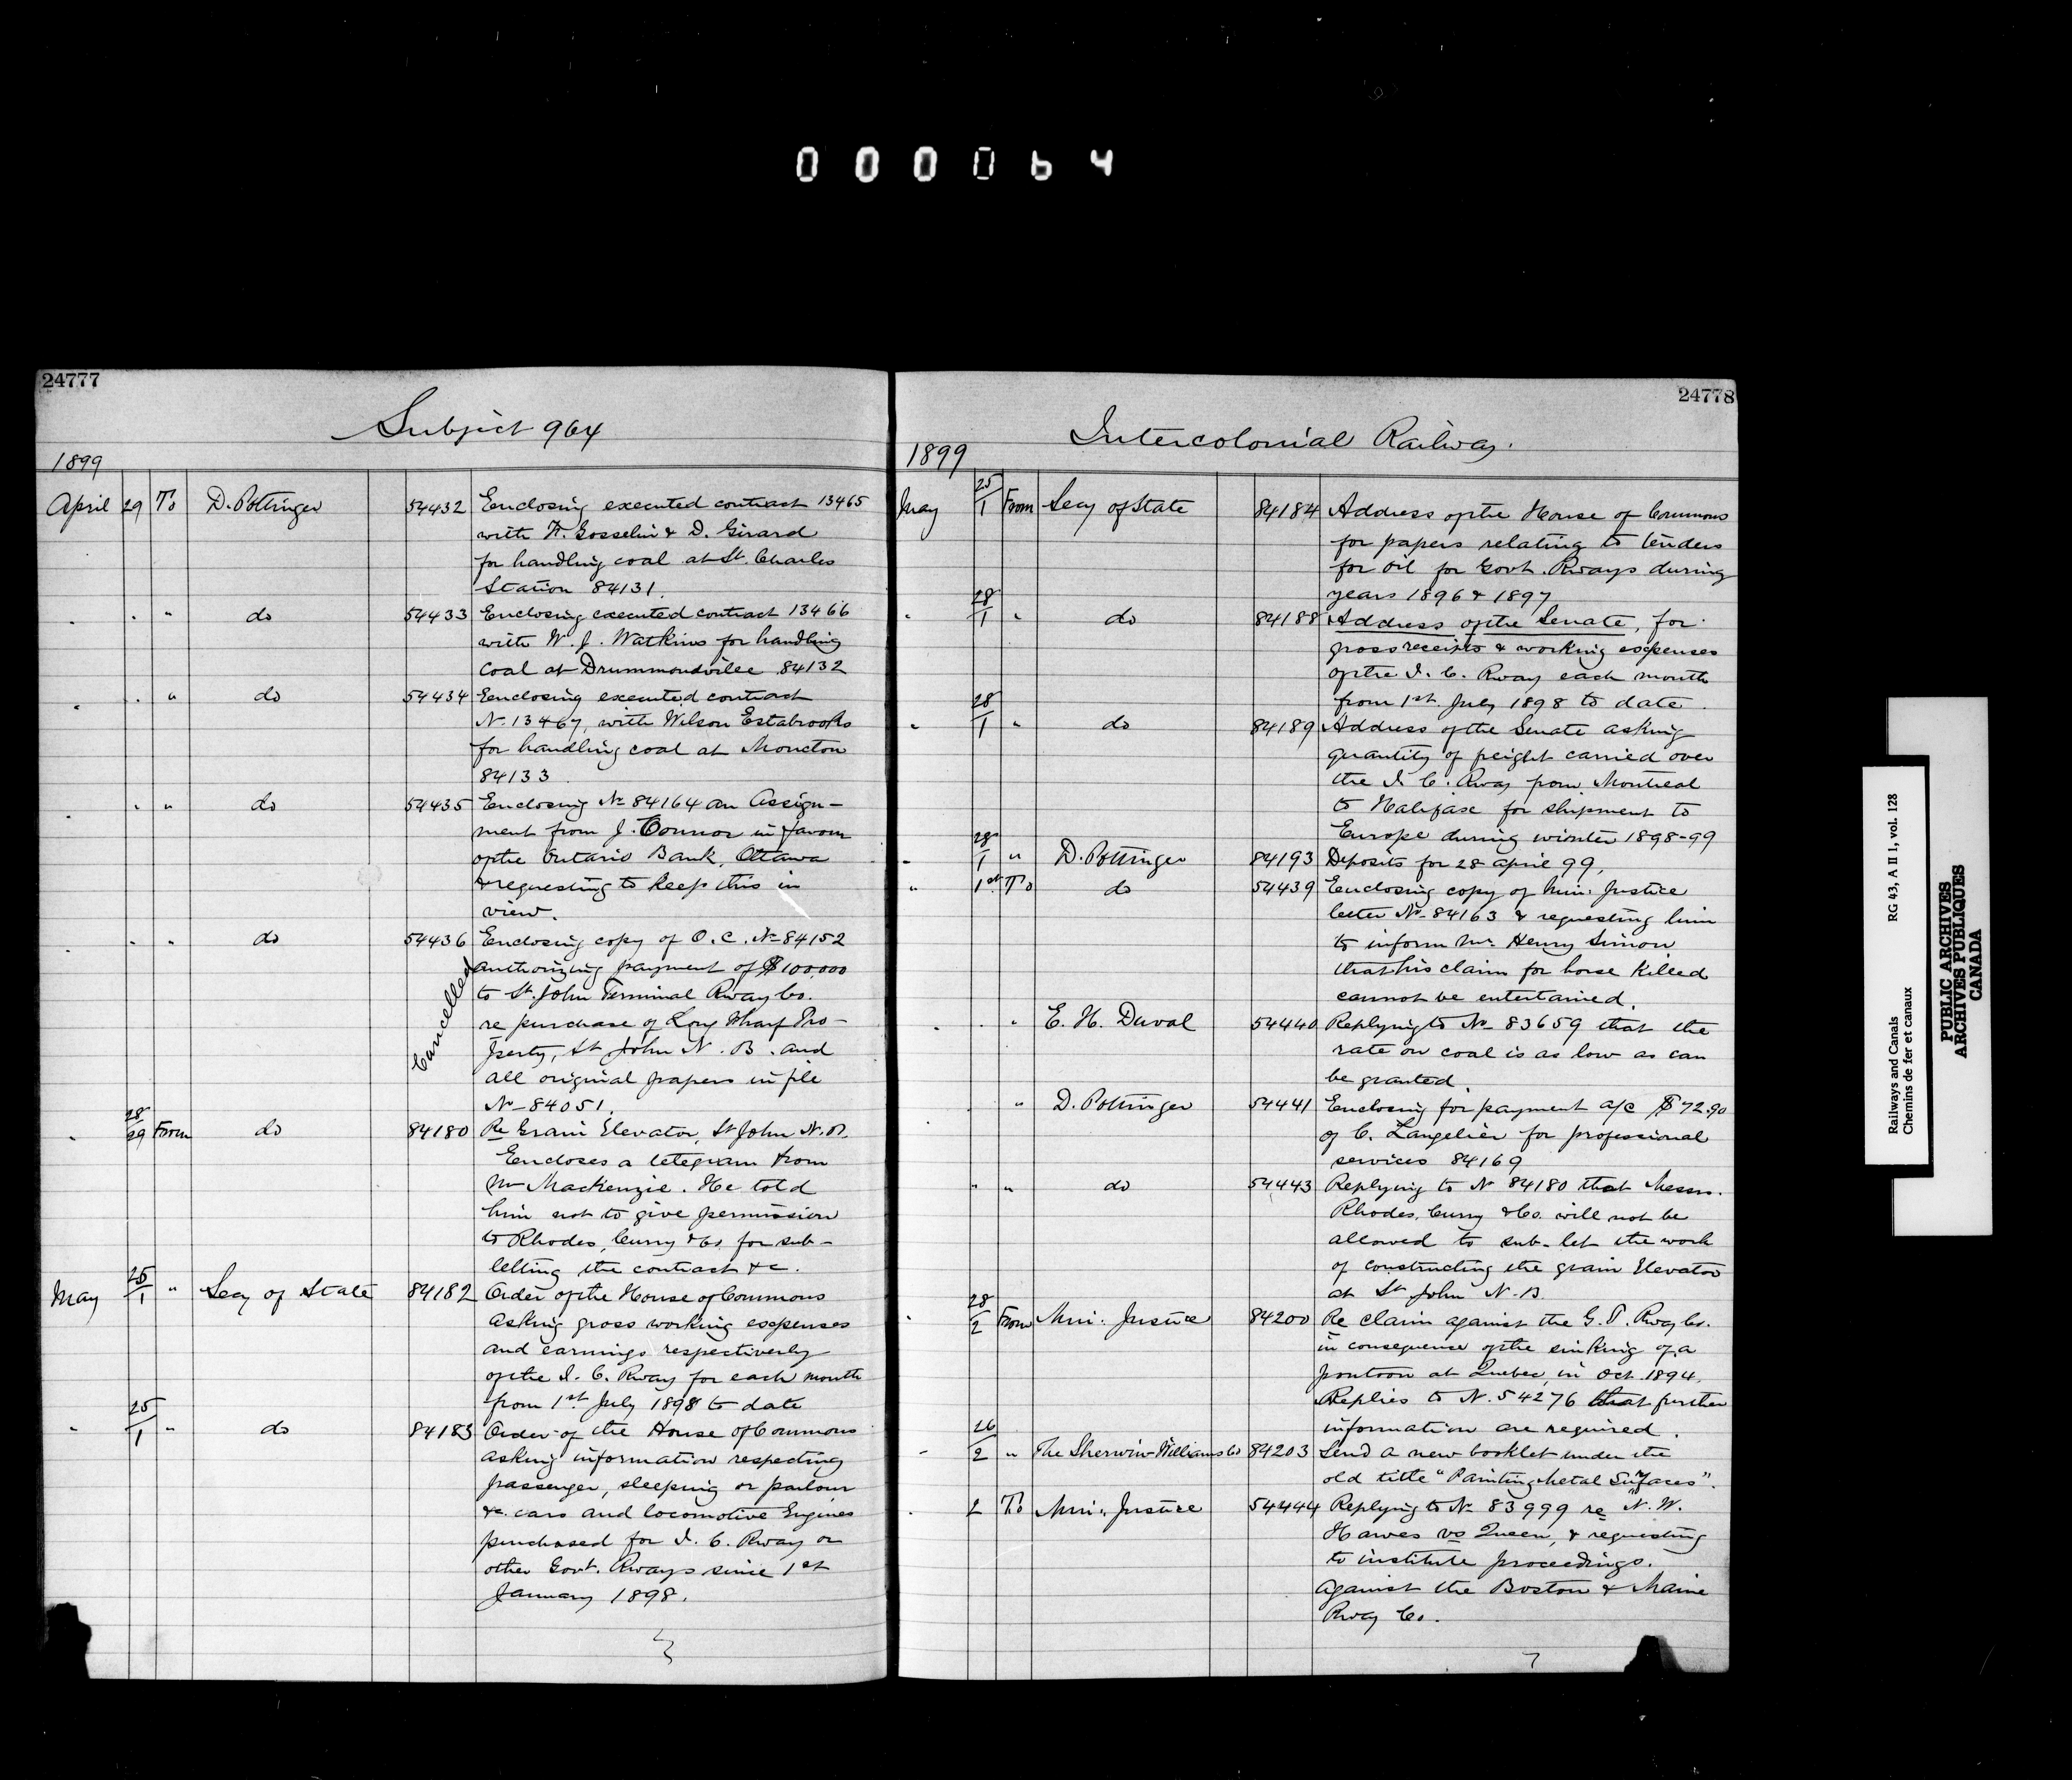 000064
24777
Subject 964
1899
April 29 To D. Pottinger 54432 Enclosing executed contract 13465
with F. Gosselin & D. Girard
for handling coal at St. Charles
Station 84131.
" " " do 54433 Enclosing executed contract 13466
with W. J. Watkins for handling
coal at Drummondville 84132
" " " do 54434 Enclosing executed contract
No. 13467, with Wilson Estabrooks
for handling coal at Moncton
84133.
" " " do 54435 Enclosing No 84164 an Assign-
ment from J. Connor in favour
of the Ontario Bank, Ottawa
& requesting to keep this in
view.
" " " do 54436 Enclosing copy of O.C. No 84152
Cancelled
authorizing payment of $100,000
to St. John Terminal Rway Co.
re purchase of Long Wharf Pro-
perty, St John N.B. and
all original papers in file
No 84051.
" 28/29 From do 84180 Re Grain Elevator, St John N.B.
Encloses a telegram from
Mr Mackenzie. He told
him not to give permission
to Rhodes, Curry & Co. for sub-
letting the contract &c.
May 25/1 " Secy of State 84182 Order of the House of Commons
asking gross working expenses
and earnings respectively
of the I. C. Rway for each month
from 1st July 1898 to date
" 25/1 " do 84183 Order of the House of Commons
asking information respecting
passenger, sleeping or parlour
&c. cars and locomotive Engines
purchased for I. C. Rway or
other Govt. Rways since 1st
January 1898.
24778
Intercolonial Railway.
1899
May 25/1 From Secy of State 84184 Address of the House of Commons
for papers relating to tenders
for oil for Govt. Rways during
years 1896 & 1897
" 28/1 " do 84188 Address of the Senate, for
gross receipts & working expenses
of the I. C. Rway each month
from 1st July 1898 to date.
" 28/1 " do 84189 Address of the Senate asking
quantity of freight carried over
the I. C. Rway from Montreal
to Halifax for shipment to
Europe during winter 1898-99
" 28/1 " D. Pottinger 84193 Deposits for 28 April 99,
" 1st To do 54439 Enclosing copy of Min. Justice
letter No 84163 & requesting him
to inform Mr. Henry Simon
that his claim for horse killed
cannot be entertained.
" " " E. H. Duval 54440 Replying to No 83659 that the
rate on coal is as low as can
be granted.
" " D. Pottinger 54441 Enclosing for payment a/c $72.90
of C. Langelier for professional
services 84169
" " do 54443 Replying to No 84180 that Messrs.
Rhodes, Curry & Co. will not be
allowed to sub-let the work
of constructing the grain Elevator
at St John N.B.
" 28/2 From Min. Justice 84200 Re claim against the G. T. Rway Co.
in consequence of the sinking of a
pontoon at Quebec, in Oct. 1894.
Replies to N. 54276 that further
information are required.
" 26/2 " The Sherwin-Williams Co 84203 Send a new booklet under the
old title "Painting Metal Surfaces".
" 2 To Min. Justice 54444 Replying to No 83999 re N. W.
Hawes vs Queen, & requesting
to institute proceedings.
against the Boston & Maine
Rway Co.
Railways and Canals RG 43, A II 1, vol. 128
Chemins de fer et canaux
PUBLIC ARCHIVES
ARCHIVES PUBLIQUES
CANADA